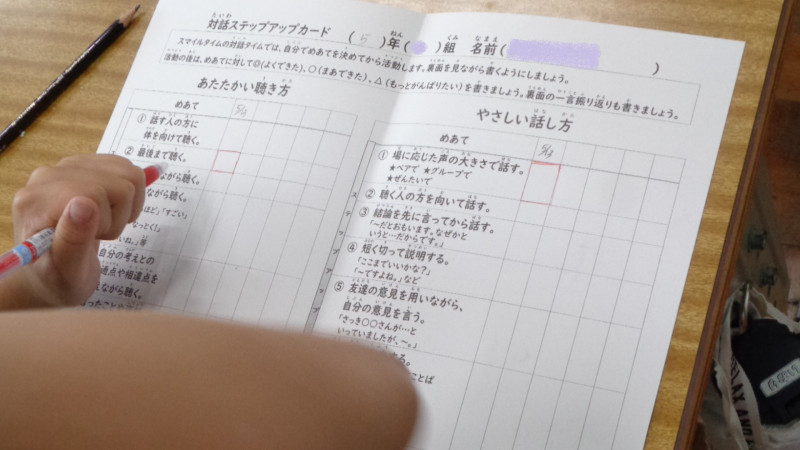 対話ステップアップカード (5)年( )組 名前( )
スマイルタイムの対話タイムでは、自分でめあてを決めてから活動します。裏面を見ながら書くようにしましょう。
活動の後は、めあてに対して◎(よくできた)、○(まあできた)、△(もっとがんばりたい)を書きましょう。裏面の一言振り返りも書きましょう。
あたたかい聴き方
めあて
① 話す人の方に
体を向けて聴く。
② 最後まで聴く。
ながら聴く。
ながら聴く。
ほど」「すごい」
なっとく!」
いいね。」等
自分の考えとの
通点や相違点を
ながら聴く。
やさしい話し方
めあて
① 場に応じた声の大きさで話す。
★ペアで ★グループで
★ぜんたいで
② 聴く人の方を向いて話す。
③ 結論を先に言ってから話す。
「~だとおもいます。なぜかと
いうと…だからです。」
④ 短く切って説明する。
「ここまでいいかな?」
「~ですよね。」など
⑤ 友達の意見を用いながら、
自分の意見を言う。
「さっき○○さんが…と
いっていましたが、~。」
する。
ことば